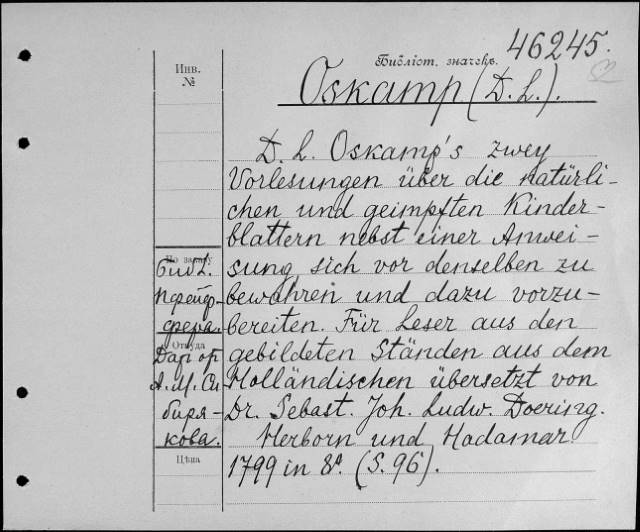 46245.
Библіот. значекъ.
Инв.
№
Oskamp (D. L.).
D. L. Oskamp's zwey
Vorlesungen über die natürli-
chen und geimpften Kinder-
blattern nebst einer Anwei-
sung sich vor denselben zu
bewahren und dazu vorzu-
bereiten. Für Leser aus den
gebildeten Ständen aus dem
Holländischen übersetzt von
Dr. Sebast. Joh. Ludw. Doering.
Herborn und Hadamar
1799 in 8°. (S. 96).
По заказу
Библ.
Пфейф-
фера.
Откуда
Даръ от
А. М. Си-
биря-
кова.
Цѣна